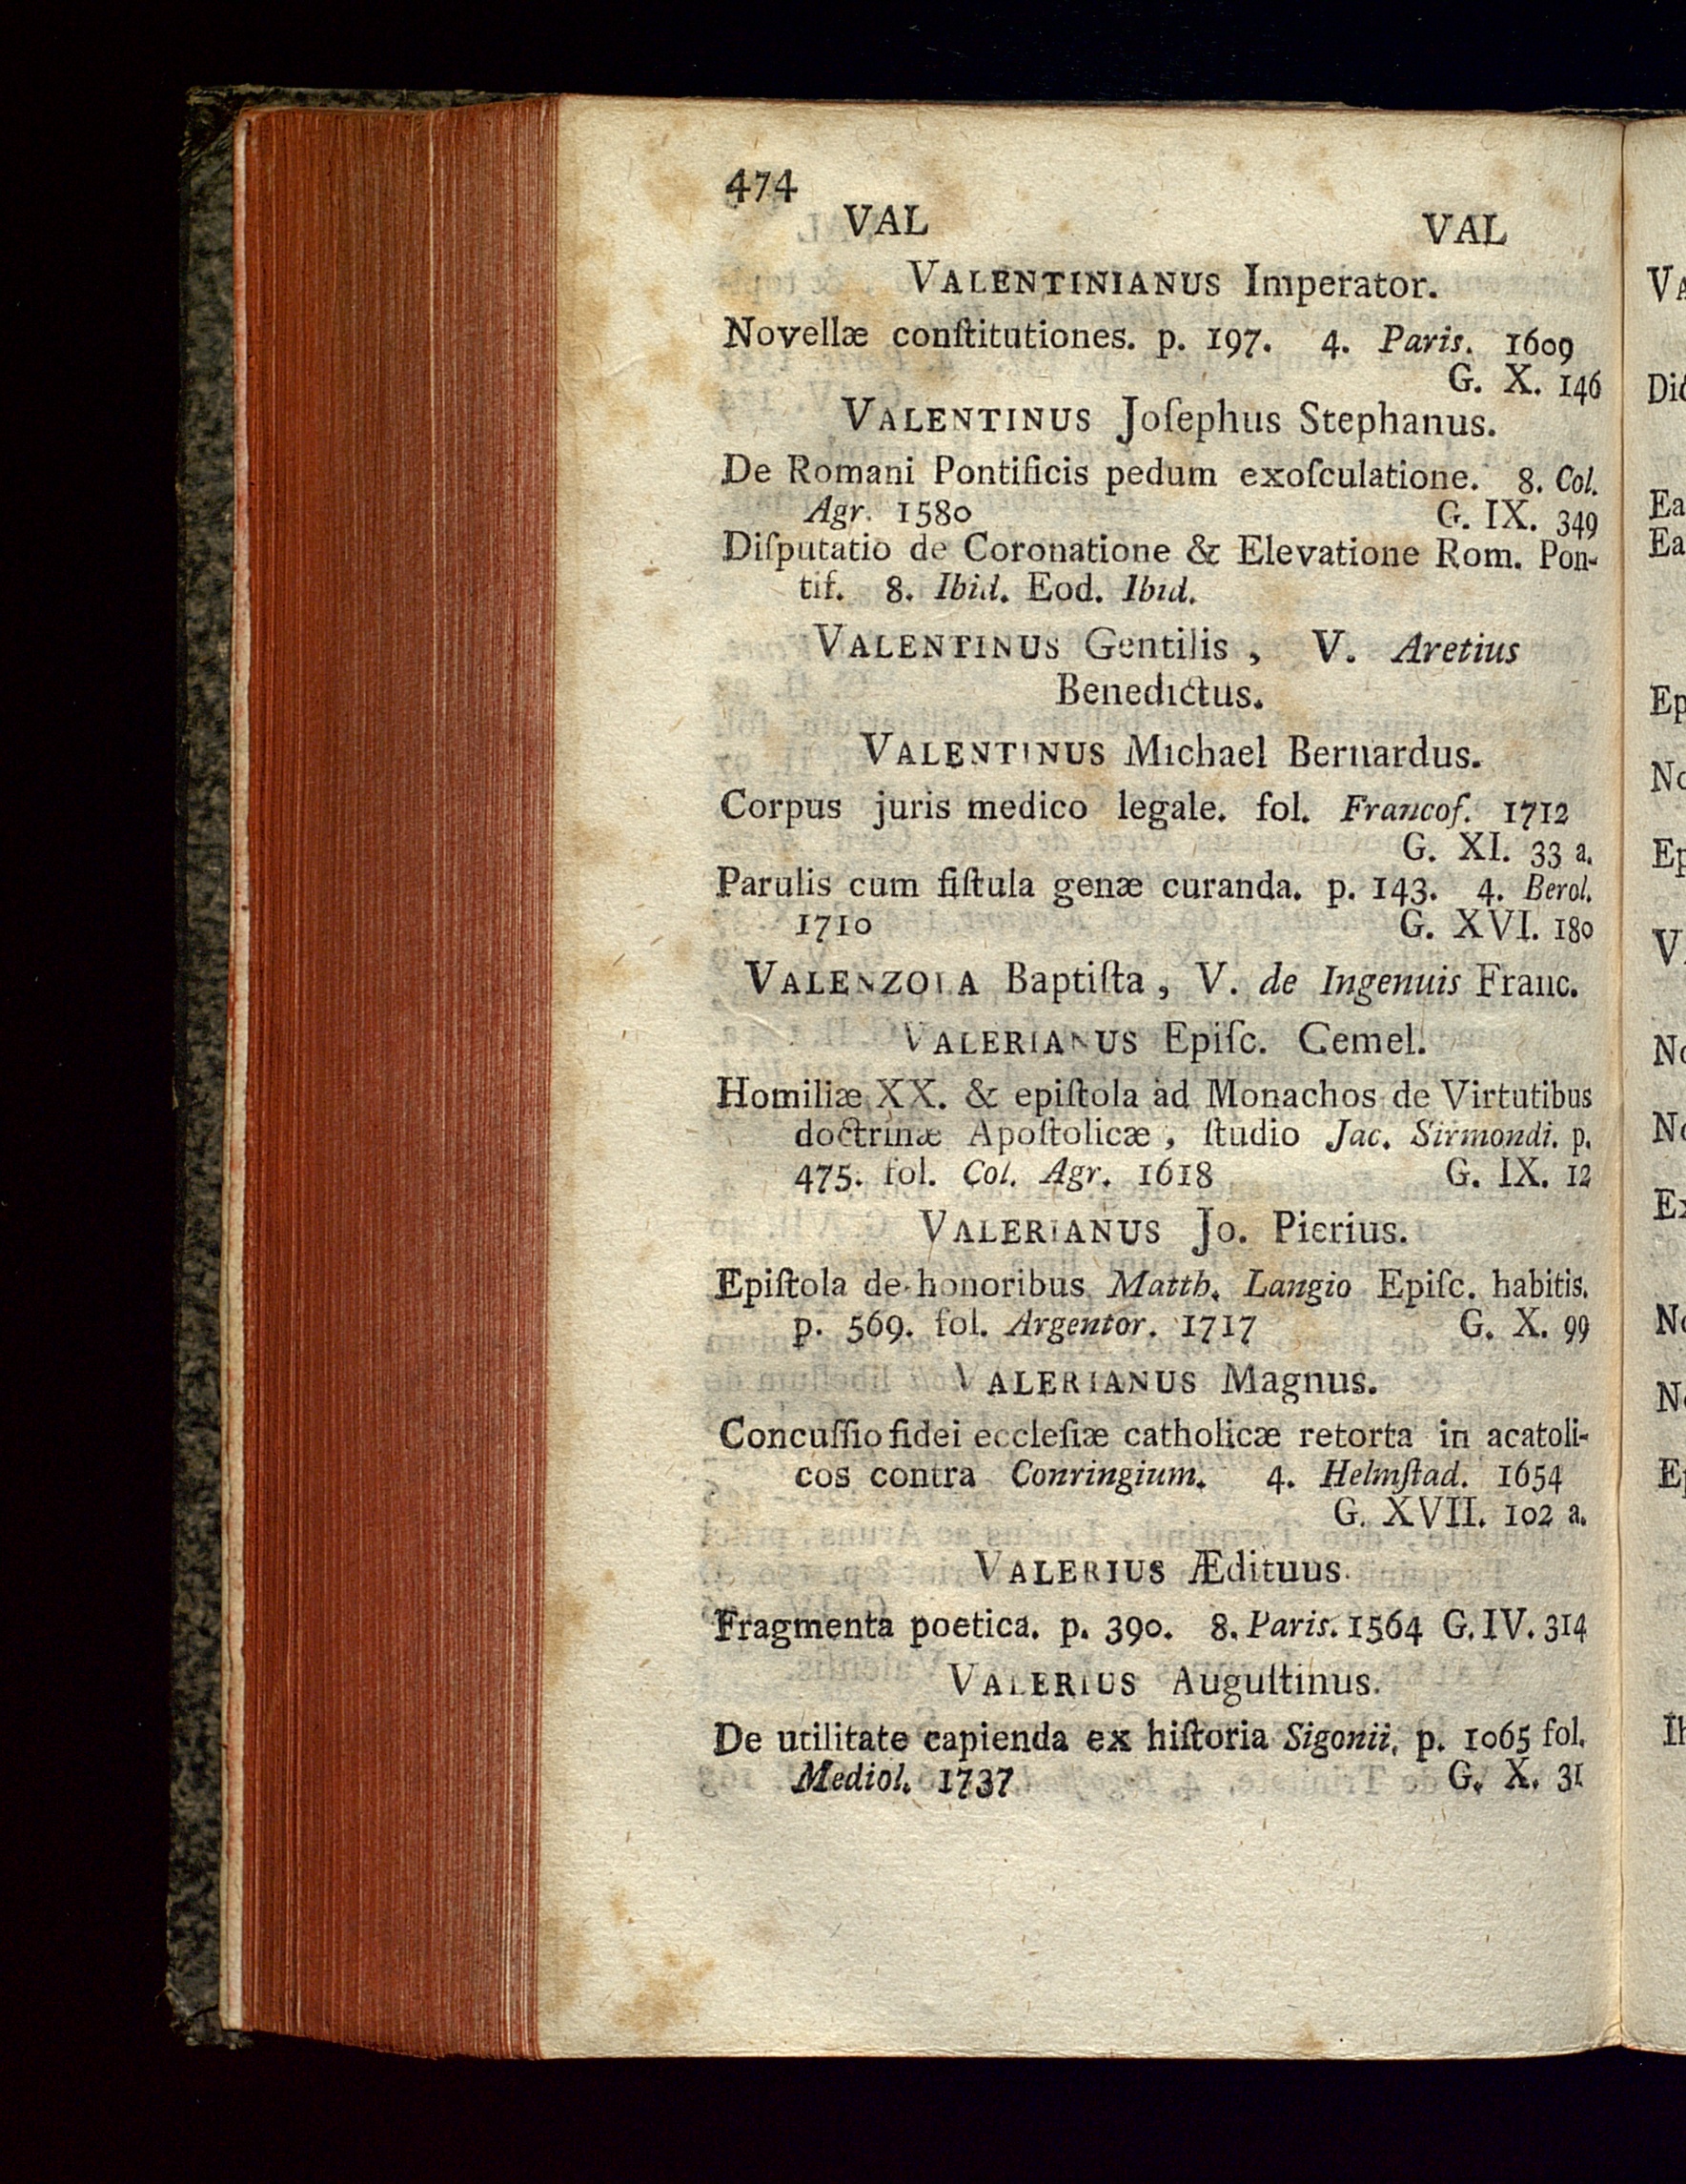 474
VAL VAL
VALENTINIANUS Imperator.
Novellæ conſtitutiones. p. 197. 4. Paris. 1609
G. X. 146
VALENTINUS Joſephus Stephanus.
De Romani Pontificis pedum exoſculatione. 8. Col.
Agr. 1580 G. IX. 349
Diſputatio de Coronatione & Elevatione Rom. Pon-
tif. 8. Ibid. Eod. Ibid.
VALENTINUS Gentilis, V. Aretius
Benedictus.
VALENTINUS Michael Bernardus.
Corpus juris medico legale. fol. Francof. 1712
G. XI. 33 a.
Parulis cum fiſtula genæ curanda. p. 143. 4. Berol.
1710 G. XVI. 180
VALENZOLA Baptiſta, V. de Ingenuis Franc.
VALERIANUS Epiſc. Cemel.
Homiliæ XX. & epiſtola ad Monachos de Virtutibus
doctrinæ Apoſtolicæ, ſtudio Jac. Sirmondi. p.
475. fol. Col. Agr. 1618 G. IX. 12
VALERIANUS Jo. Pierius.
Epiſtola de honoribus Matth. Langio Epiſc. habitis.
p. 569. fol. Argentor. 1717 G. X. 99
VALERIANUS Magnus.
Concuſſio fidei eccleſiæ catholicæ retorta in acatoli-
cos contra Conringium. 4. Helmſtad. 1654
G. XVII. 102 a.
VALERIUS Ædituus.
Fragmenta poetica. p. 390. 8. Paris. 1564 G. IV. 314
VALERIUS Auguſtinus.
De utilitate capienda ex hiſtoria Sigonii, p. 1065 fol.
Mediol. 1737 G. X. 31